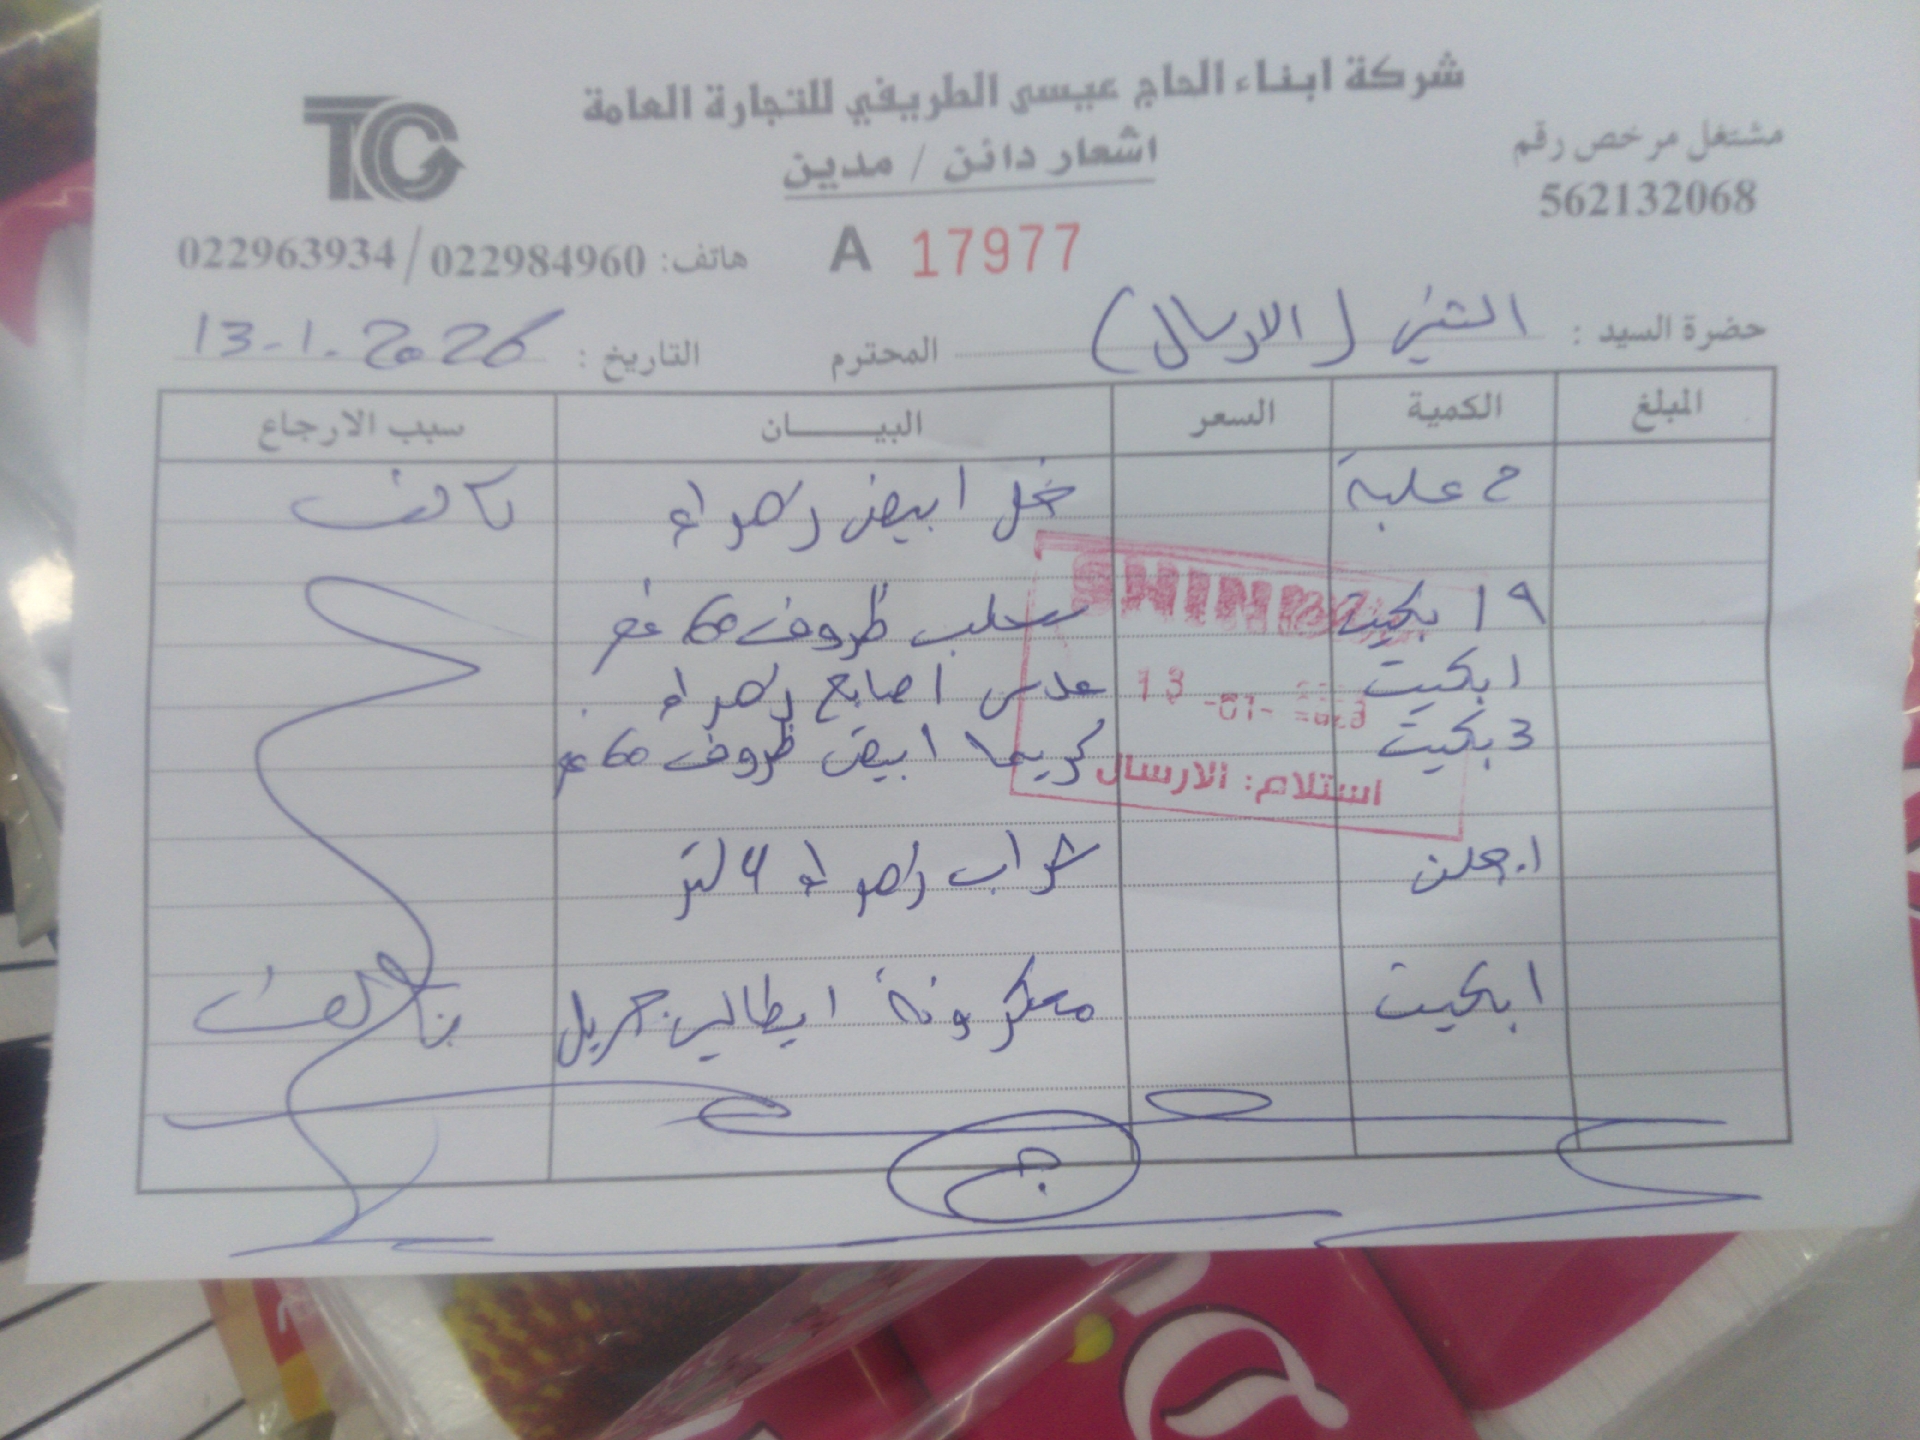 شركة ابناء الحاج عيسى الطريفي للتجارة العامة
TC
اشعار دائن / مدين
مشتغل مرخص رقم
562132068
A 17977
هاتف: 022984960 / 022963934
حضرة السيد : الشني (الارسال) المحترم
التاريخ : 13-1-2026
المبلغ الكمية السعر البيـــــان سبب الارجاع
2 علبة خل ابيض زهراء تالف
19 بكيت سحلب ظروف 60 غم
1 بكيت عدس اصابع زهراء
3 بكيت كريما ابيض ظروف 60 غم
1 جلن شراب زهراء 4 لتر
1 بكيت معكرونة ايطالي جريل تالف
13 -01-
استلام: الارسال